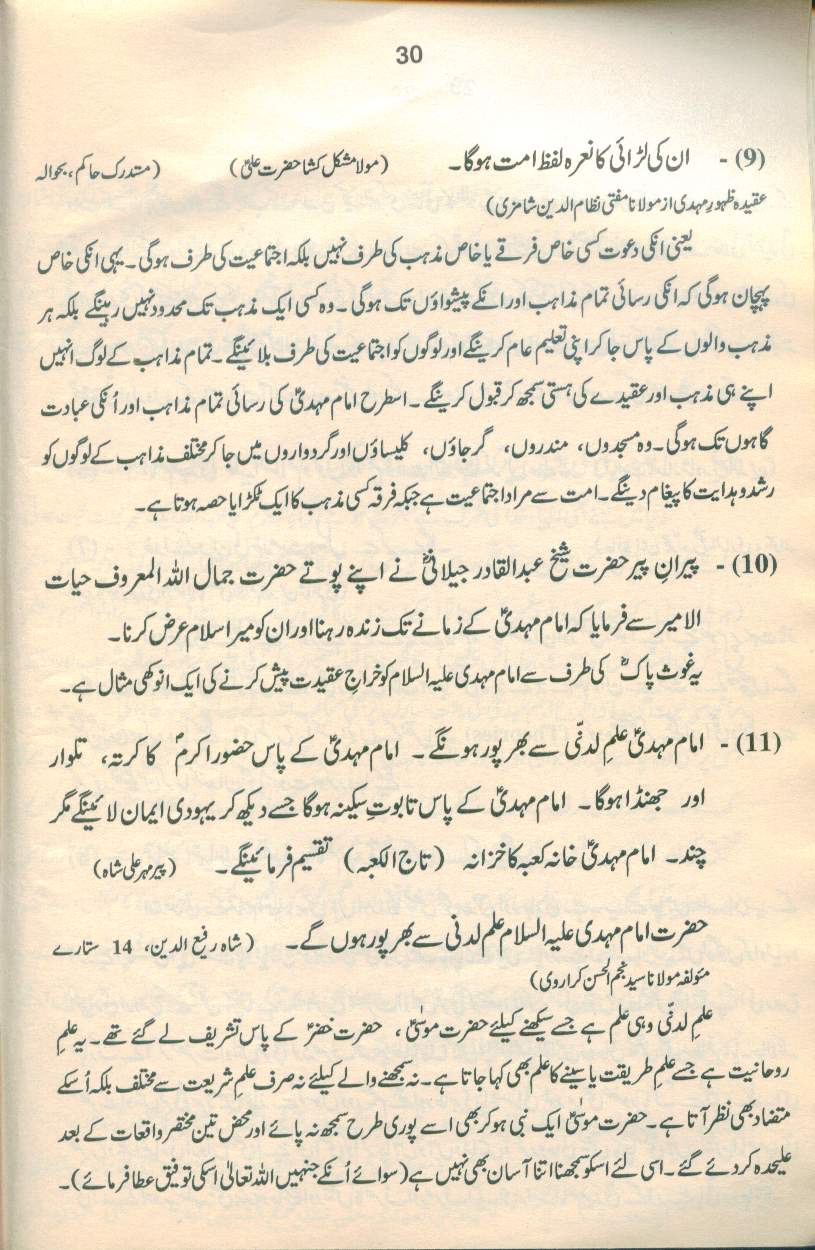 30
(9) - ان کی لڑائی کا نعرہ لفظ امت ہوگا۔ (مولا مشکل کشا حضرت علیؓ) (متدرک حاکم، بحوالہ
عقیدہ ظہور مہدی از مولانا مفتی نظام الدین شامزی)
یعنی انکی دعوت کسی خاص فرقے یا خاص مذہب کی طرف نہیں بلکہ اجتماعیت کی طرف ہوگی۔ یہی انکی خاص
پہچان ہوگی کہ انکی رسائی تمام مذاہب اور انکے پیشواؤں تک ہوگی۔ وہ کسی ایک مذہب تک محدود نہیں رہینگے بلکہ ہر
مذہب والوں کے پاس جا کر اپنی تعلیم عام کرینگے اور لوگوں کو اجتماعیت کی طرف بلائینگے۔ تمام مذاہب کے لوگ انہیں
اپنے ہی مذہب اور عقیدے کی ہستی سمجھ کر قبول کرینگے۔ اسطرح امام مہدیؑ کی رسائی تمام مذاہب اور اُنکی عبادت
گاہوں تک ہوگی۔ وہ مسجدوں، مندروں، گرجاؤں، کلیساؤں اور گردواروں میں جا کر مختلف مذاہب کے لوگوں کو
رشد و ہدایت کا پیغام دینگے۔ امت سے مراد اجتماعیت ہے جبکہ فرقہ کسی مذہب کا ایک ٹکڑا یا حصہ ہوتا ہے۔
(10) - پیرانِ پیر حضرت شیخ عبدالقادر جیلانیؒ نے اپنے پوتے حضرت جمال اللہ المعروف حیات
الامیر سے فرمایا کہ امام مہدیؑ کے زمانے تک زندہ رہنا اور ان کو میرا سلام عرض کرنا۔
یہ غوث پاکؓ کی طرف سے امام مہدی علیہ السلام کو خراجِ عقیدت پیش کرنے کی ایک انوکھی مثال ہے۔
(11) - امام مہدیؑ علمِ لدنّی سے بھرپور ہونگے۔ امام مہدیؑ کے پاس حضور اکرمؐ کا کرتہ، تلوار
اور جھنڈا ہوگا۔ امام مہدیؑ کے پاس تابوتِ سکینہ ہوگا جسے دیکھ کر یہودی ایمان لائینگے مگر
چند۔ امام مہدیؑ خانہ کعبہ کا خزانہ (تاج الکعبہ) تقسیم فرمائینگے۔ (پیر مہر علی شاہ)
حضرت امام مہدی علیہ السلام علم لدنی سے بھرپور ہوں گے۔ (شاہ رفیع الدین، 14 ستارے
مئولفہ مولانا سید نجم الحسن کراروی)
علمِ لدنّی وہی علم ہے جسے سیکھنے کیلئے حضرت موسٰیؑ، حضرت خضرؑ کے پاس تشریف لے گئے تھے۔ یہ علمِ
روحانیت ہے جسے علمِ طریقت یا سینے کا علم بھی کہا جاتا ہے۔ نہ سمجھنے والے کیلئے نہ صرف علمِ شریعت سے مختلف بلکہ اُسکے
متضاد بھی نظر آتا ہے۔ حضرت موسٰیؑ ایک نبی ہو کر بھی اسے پوری طرح سمجھ نہ پائے اور محض تین مختصر واقعات کے بعد
علیحدہ کر دئے گئے۔ اسی لئے اسکو سمجھنا اتنا آسان بھی نہیں ہے (سوائے اُنکے جنہیں اللہ تعالیٰ اسکی توفیق عطا فرمائے)۔